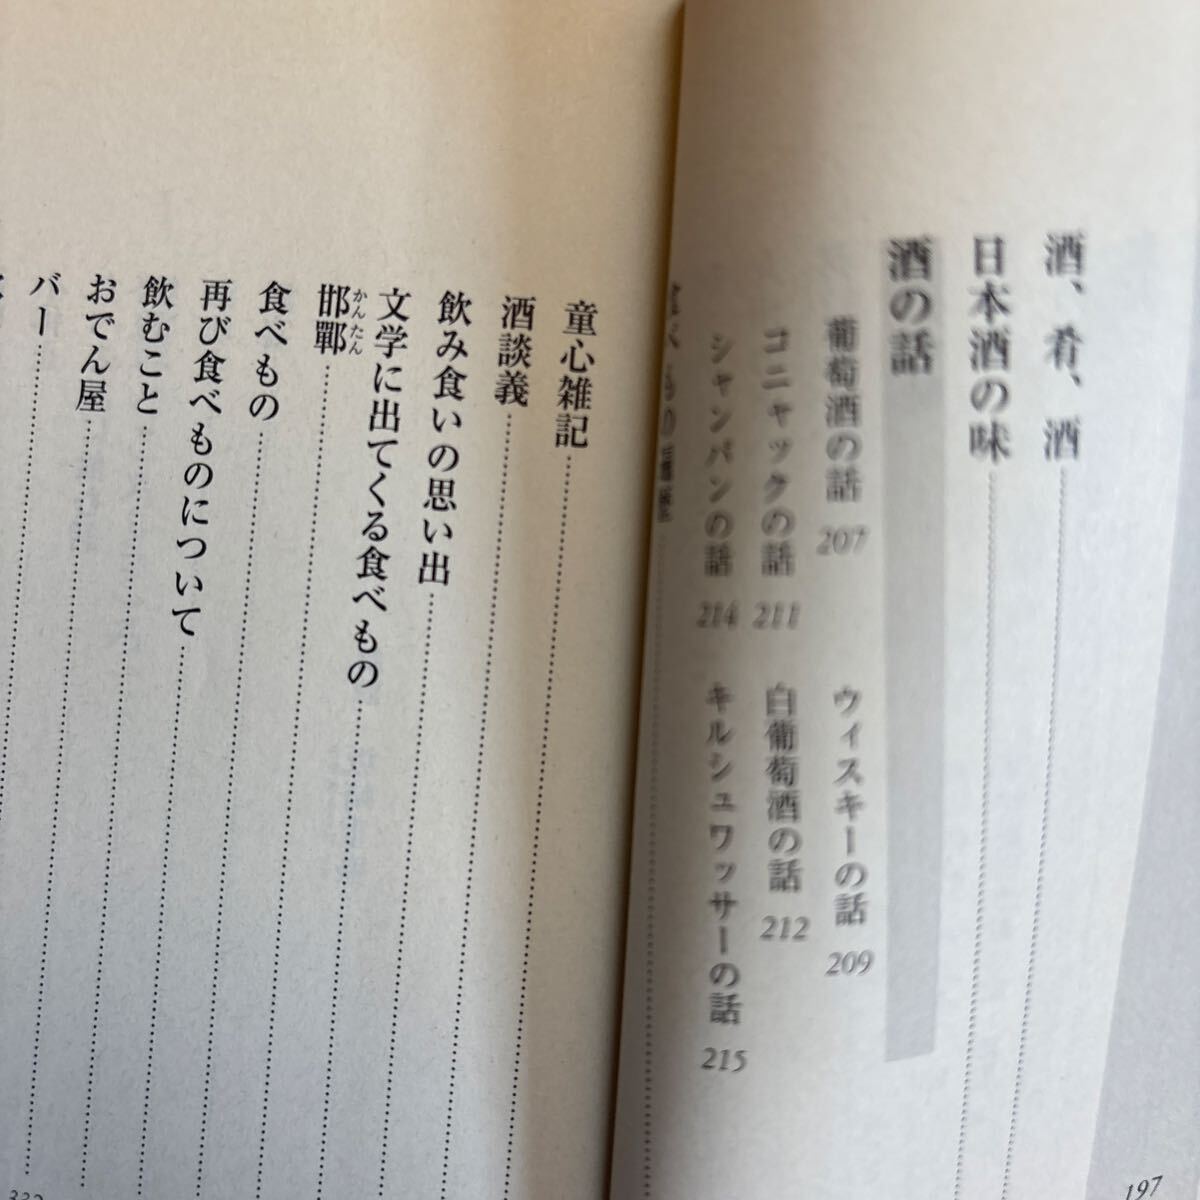 酒、肴、酒
197
日本酒の味
酒の話
葡萄酒の話 207
ウィスキーの話 209
コニャックの話 211
白葡萄酒の話 212
シャンパンの話 214
キルシュワッサーの話 215
童心雑記
酒談義
飲み食いの思い出
文学に出てくる食べもの
邯鄲
かんたん
食べもの
再び食べものについて
飲むこと
おでん屋
バー